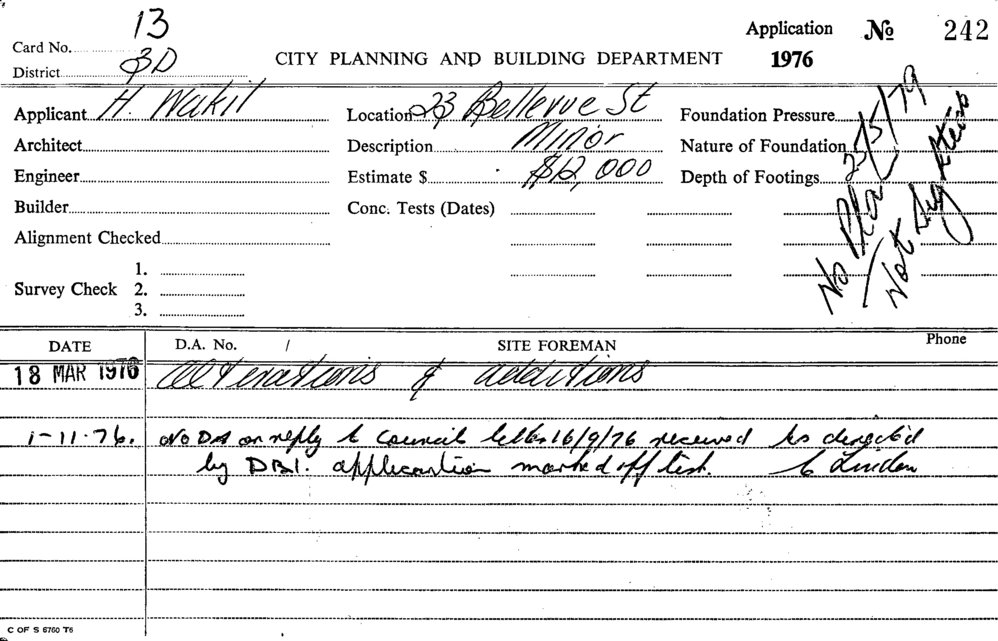 13
Card No.
District 3D
CITY PLANNING AND BUILDING DEPARTMENT
Application No 242
1976
Applicant H. Wakil
Location 23 Bellevue St
Foundation Pressure
Architect
Description Minor
Nature of Foundation
Engineer
Estimate $ $12,000
Depth of Footings
Builder
Conc. Tests (Dates)
Alignment Checked
Survey Check 1.
2.
3.
No Plan 25/5/79
Not
DATE D.A. No. / SITE FOREMAN Phone
18 MAR 1976 Alterations & additions
1-11-76. No DA or reply to Council letter 16/9/76 received As directed
by DBI. application marked off list.
C OF S 6760 T6